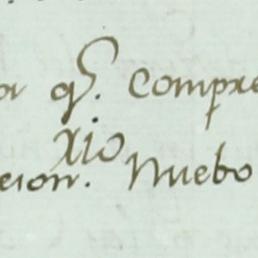 or qͤ. Compre
xio
eion. Nuebo